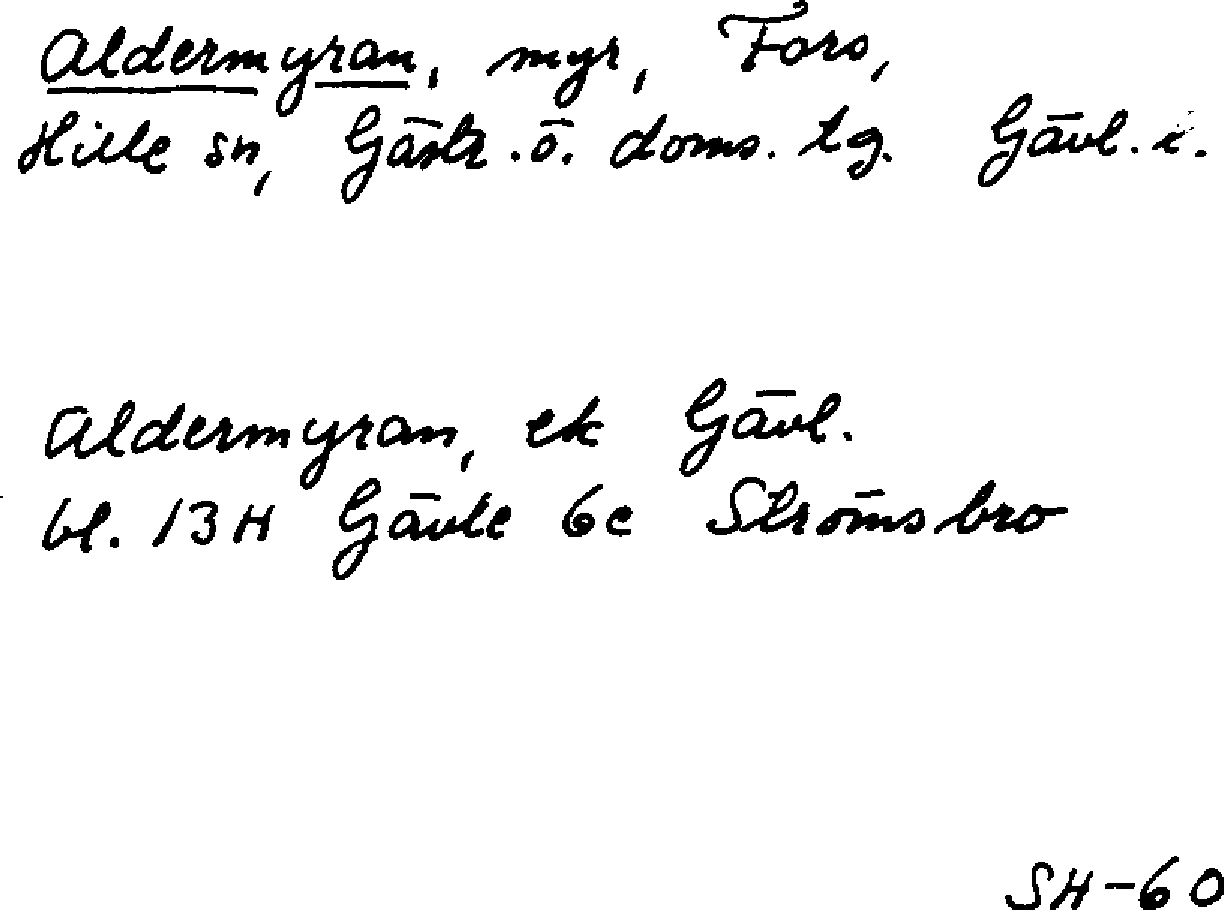 Aldermyran, myr, Fors,
Hille sn, Gästr. ö. doms. tg. Gävl. l.
Aldermyran, ek Gävl.
bl. 13H Gävle 6c Strömsbro
SH-60